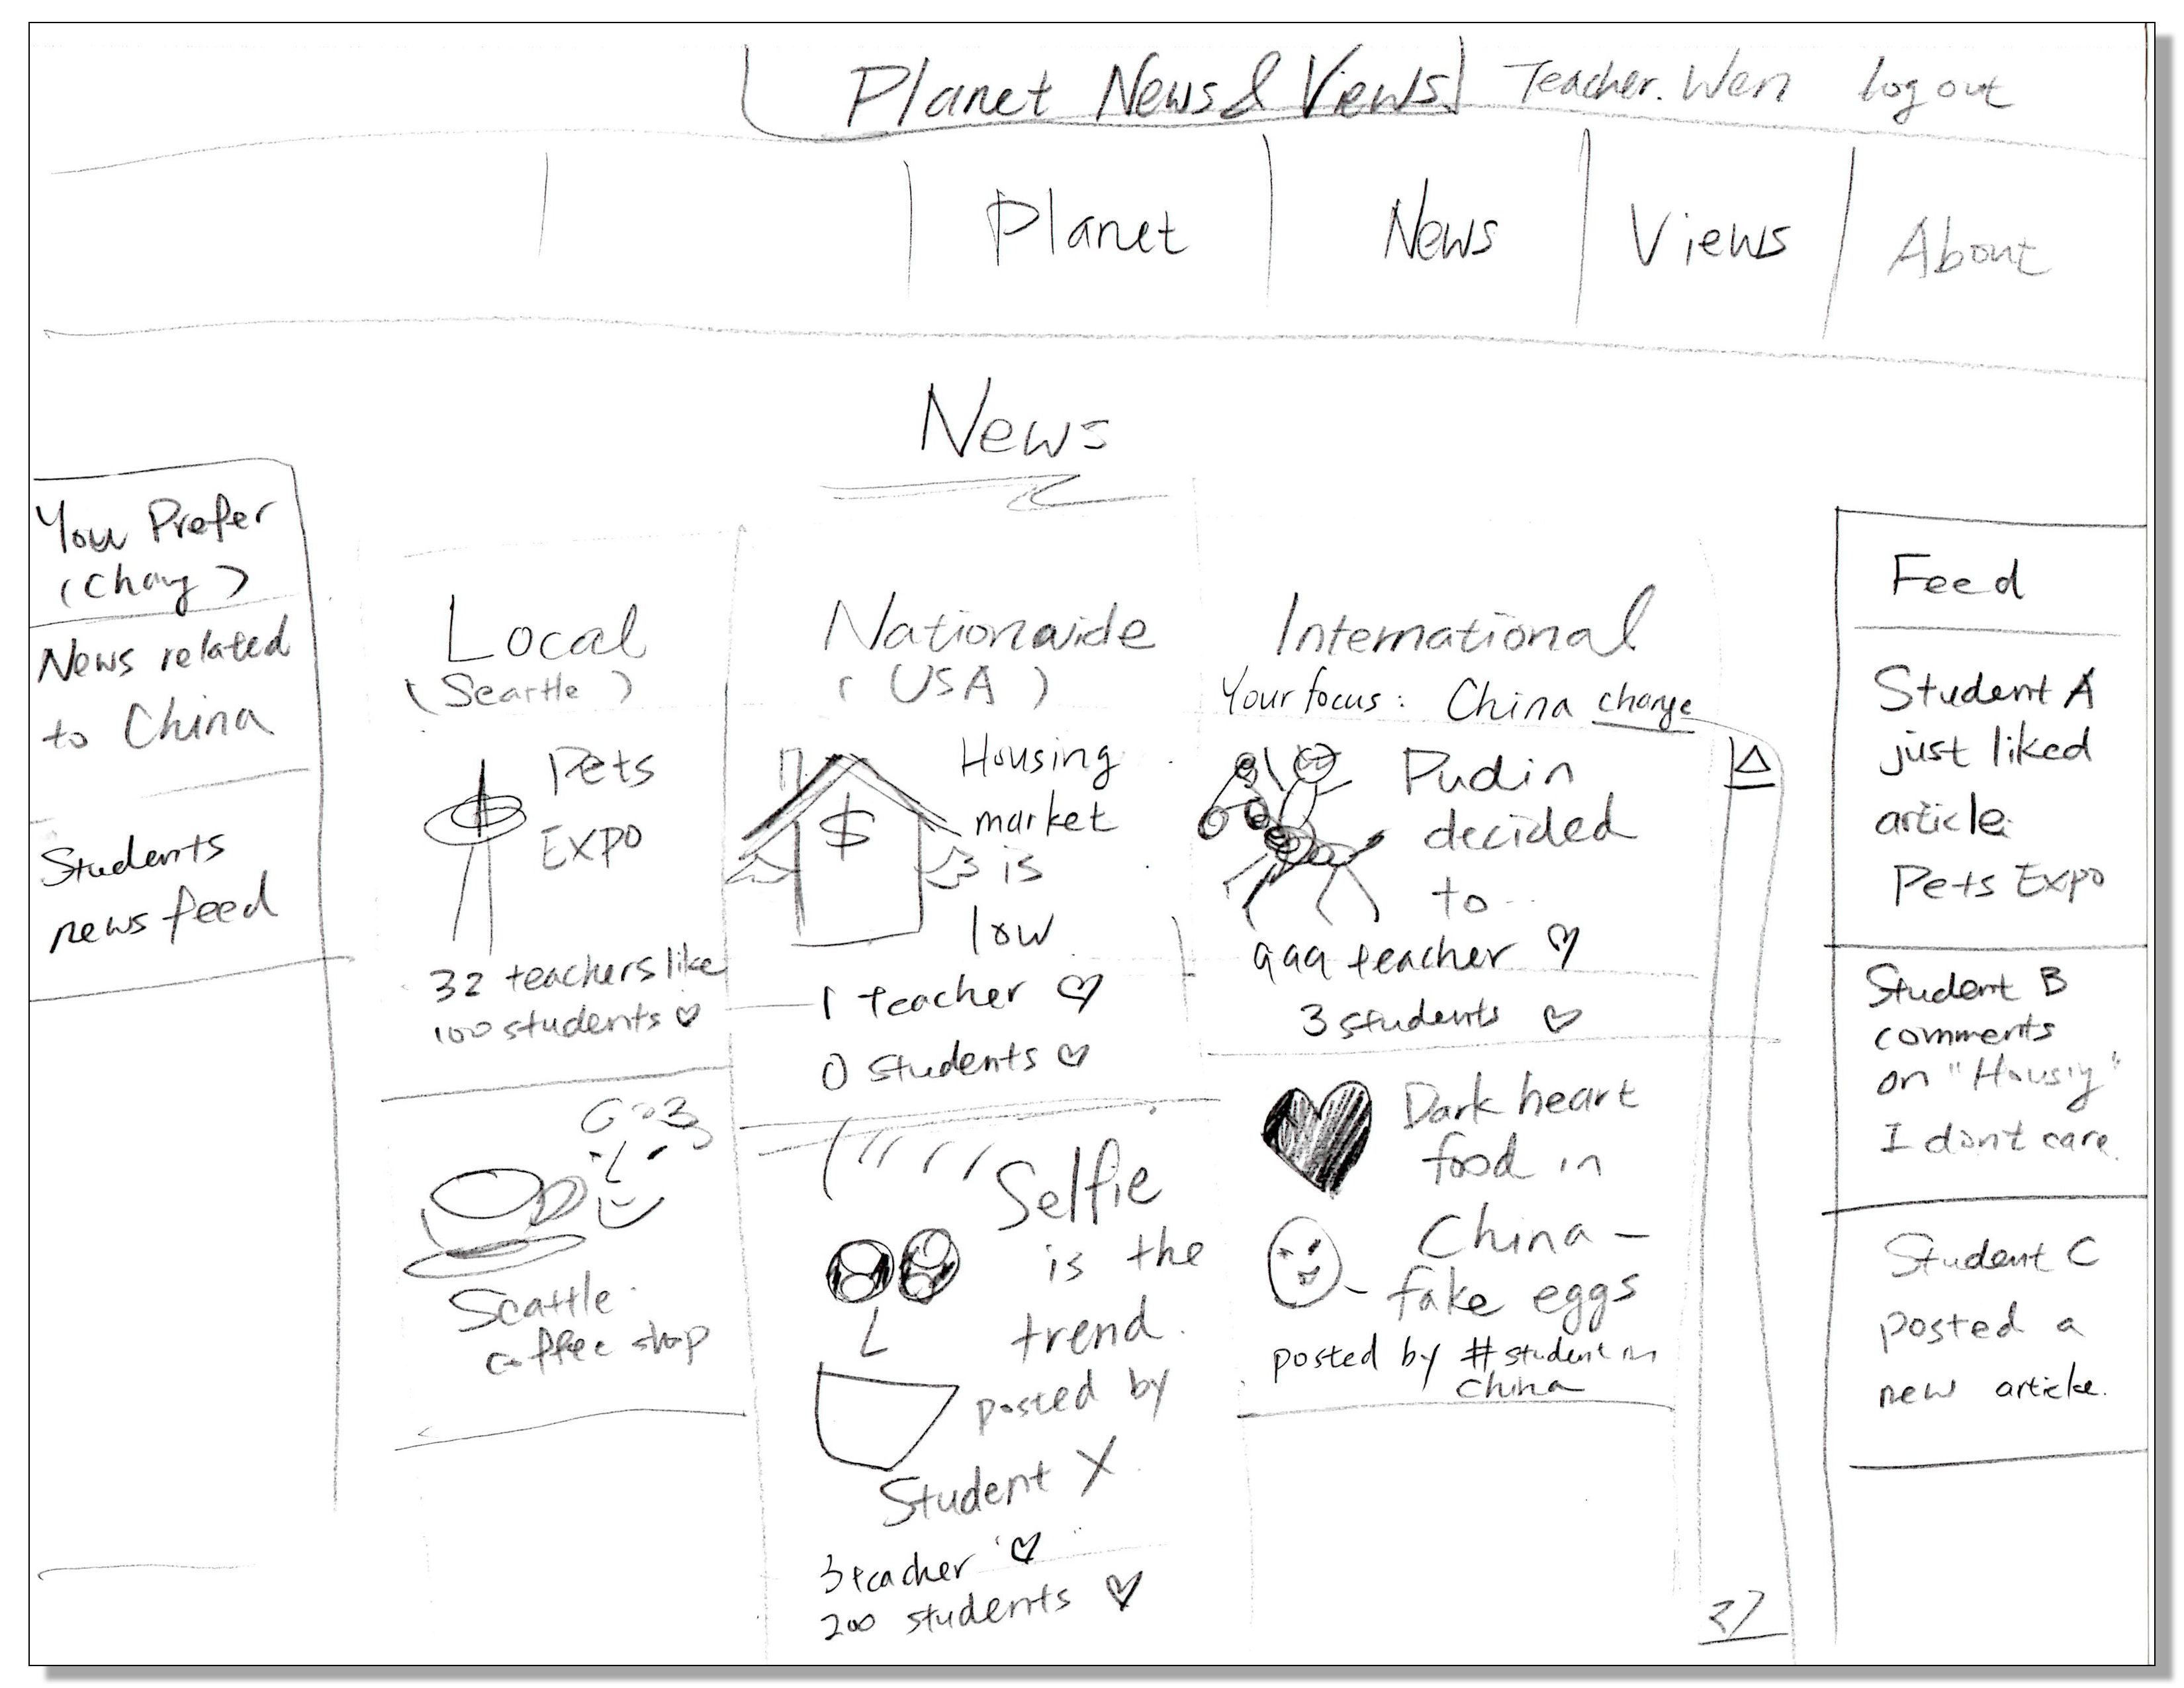 Planet News & Views
Teacher. Wen
log out
Planet
News
Views
About
News
You Prefer
(Chang)
News related
to China
Students
news feed
Local
(Seattle)
Pets
Expo
32 teachers like
100 students ♡
Seattle
coffee shop
Nationwide
(USA)
Housing
market
is
low
$
1 teacher ♡
0 students ♡
Selfie
is the
trend.
posted by
Student X
3 teacher ♡
200 students ♡
International
Your focus: China change
Pudin
decided
to..
999 teacher ♡
3 students ♡
Dark heart
food in
China –
fake eggs
posted by #student in
China
Feed
Student A
just liked
article
Pets Expo
Student B
comments
on "Housig"
I dont care.
Student C
posted a
new article.